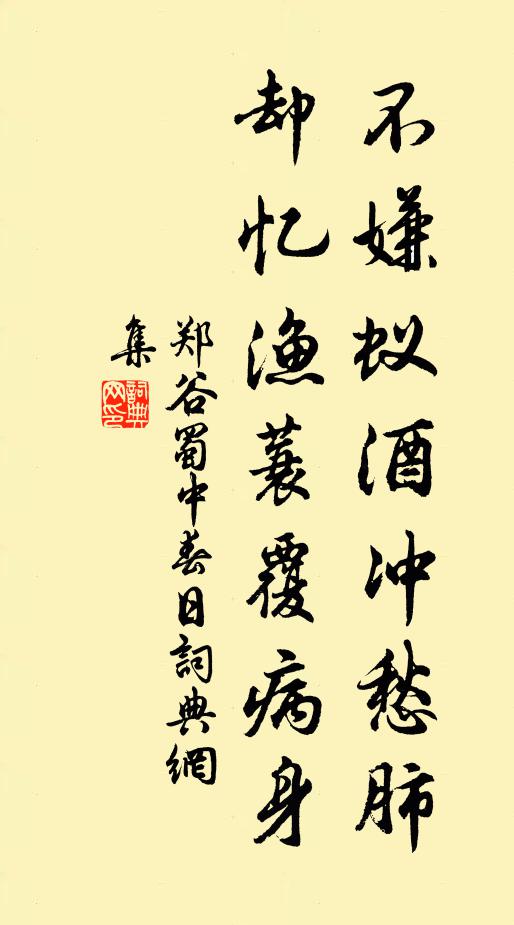 不嫌蚁酒冲愁肺
却忆渔蓑覆病身
郑谷蜀中春日詞典網
集
詞典網印